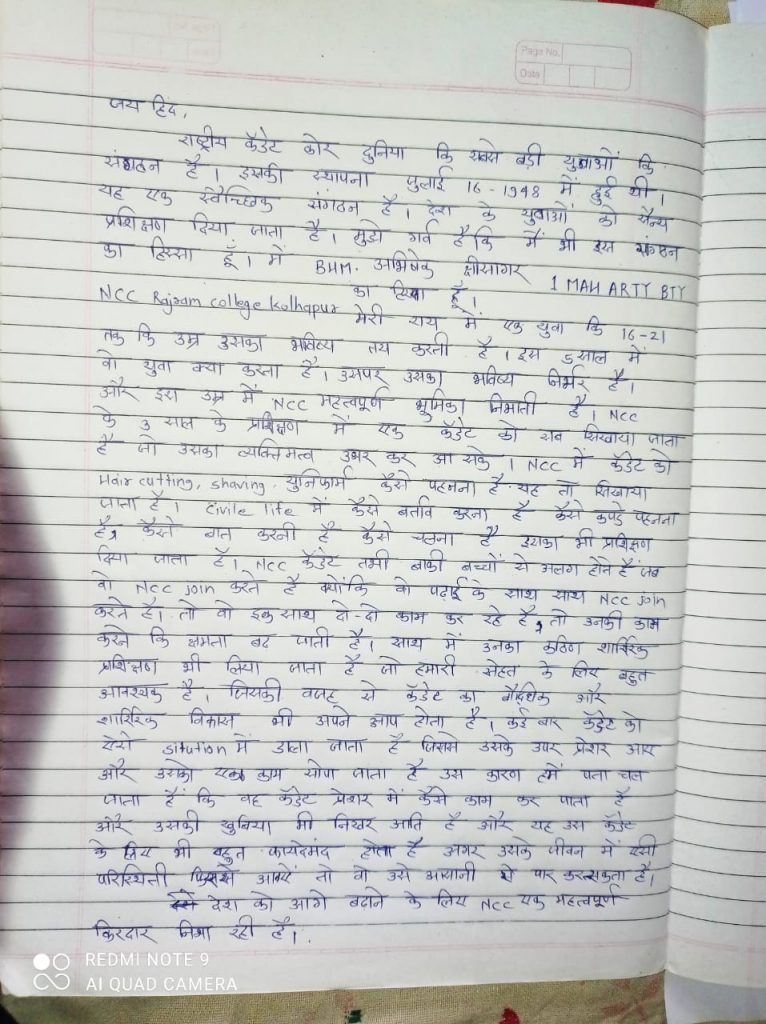 Page No.
Date
जय हिंद,
राष्ट्रीय कॅडेट कोर दुनिया कि सबसे बड़ी युवाओं कि
संगठन है। इसकी स्थापना जुलाई 16-1948 में हुई थी।
यह एक स्वैच्छिक संगठन है। देश के युवाओं को सैन्य
प्रशिक्षण दिया जाता है। मुझे गर्व है कि मैं भी इस संगठन
का हिस्सा हूँ। में BHM. अभिषेक क्षीरसागर 1 MAH ARTY BTY
NCC Rajaram college kolhapur का हिस्सा हूँ।
मेरी राय में एक युवा कि 16-21
तक कि उम्र उसका भविष्य तय करती है। इस 5 साल में
वो युवा क्या करता है। उसपर उसका भविष्य निर्भर है।
और इस उम्र में NCC महत्वपूर्ण भूमिका निभाती है। NCC
के 3 साल के प्रशिक्षण में एक कॅडेट को सब सिखाया जाता
है जो उसका व्यक्तिमत्व उभर कर आ सके। NCC में कॅडेट को
Hair cutting, shaving. युनिफार्म कैसे पहनना है यह तो सिखाया
जाता है। civile life में कैसे बर्ताव करना है कैसे कपडे पहनना
है, कैसे बात करनी है कैसे चलना है इसका भी प्रशिक्षण
दिया जाता है। NCC कॅडेट तभी बाकी बच्चों से अलग होते है जब
वो NCC join करते है क्योंकि वो पढ़ाई के साथ साथ NCC join
करते है। तो वो इक साथ दो-दो काम कर रहे है, तो उनकी काम
करने कि क्षमता बढ जाती है। साथ में उनका कठिण शारिरिक
प्रशिक्षण भी लिया जाता है जो हमारी सेहत के लिए बहुत
आवश्यक है। जिसकी वजह से कॅडेट का बौद्धिक और
शारिरिक विकास भी अपने आप होता है। कई बार कॅडेट को
ऐसे sitution में डाला जाता है जिससे उसके उपर प्रेशर आए
और उसको एक काम सोपा जाता है उस कारण हमें पता चल
जाता है कि वह कॅडेट प्रेशर में कैसे काम कर पाता है
और उसकी खुबिया भी निखर आति है और यह उस कॅडेट
के लिए भी बहुत फायदेमंद होता है अगर उसके जीवन में एसी
परिस्थिती आयें तो वो उसे आसानी से पार कर सकता है।
देश को आगे बढाने के लिए NCC एक महत्वपूर्ण
किरदार निभा रही है।
REDMI NOTE 9
AI QUAD CAMERA